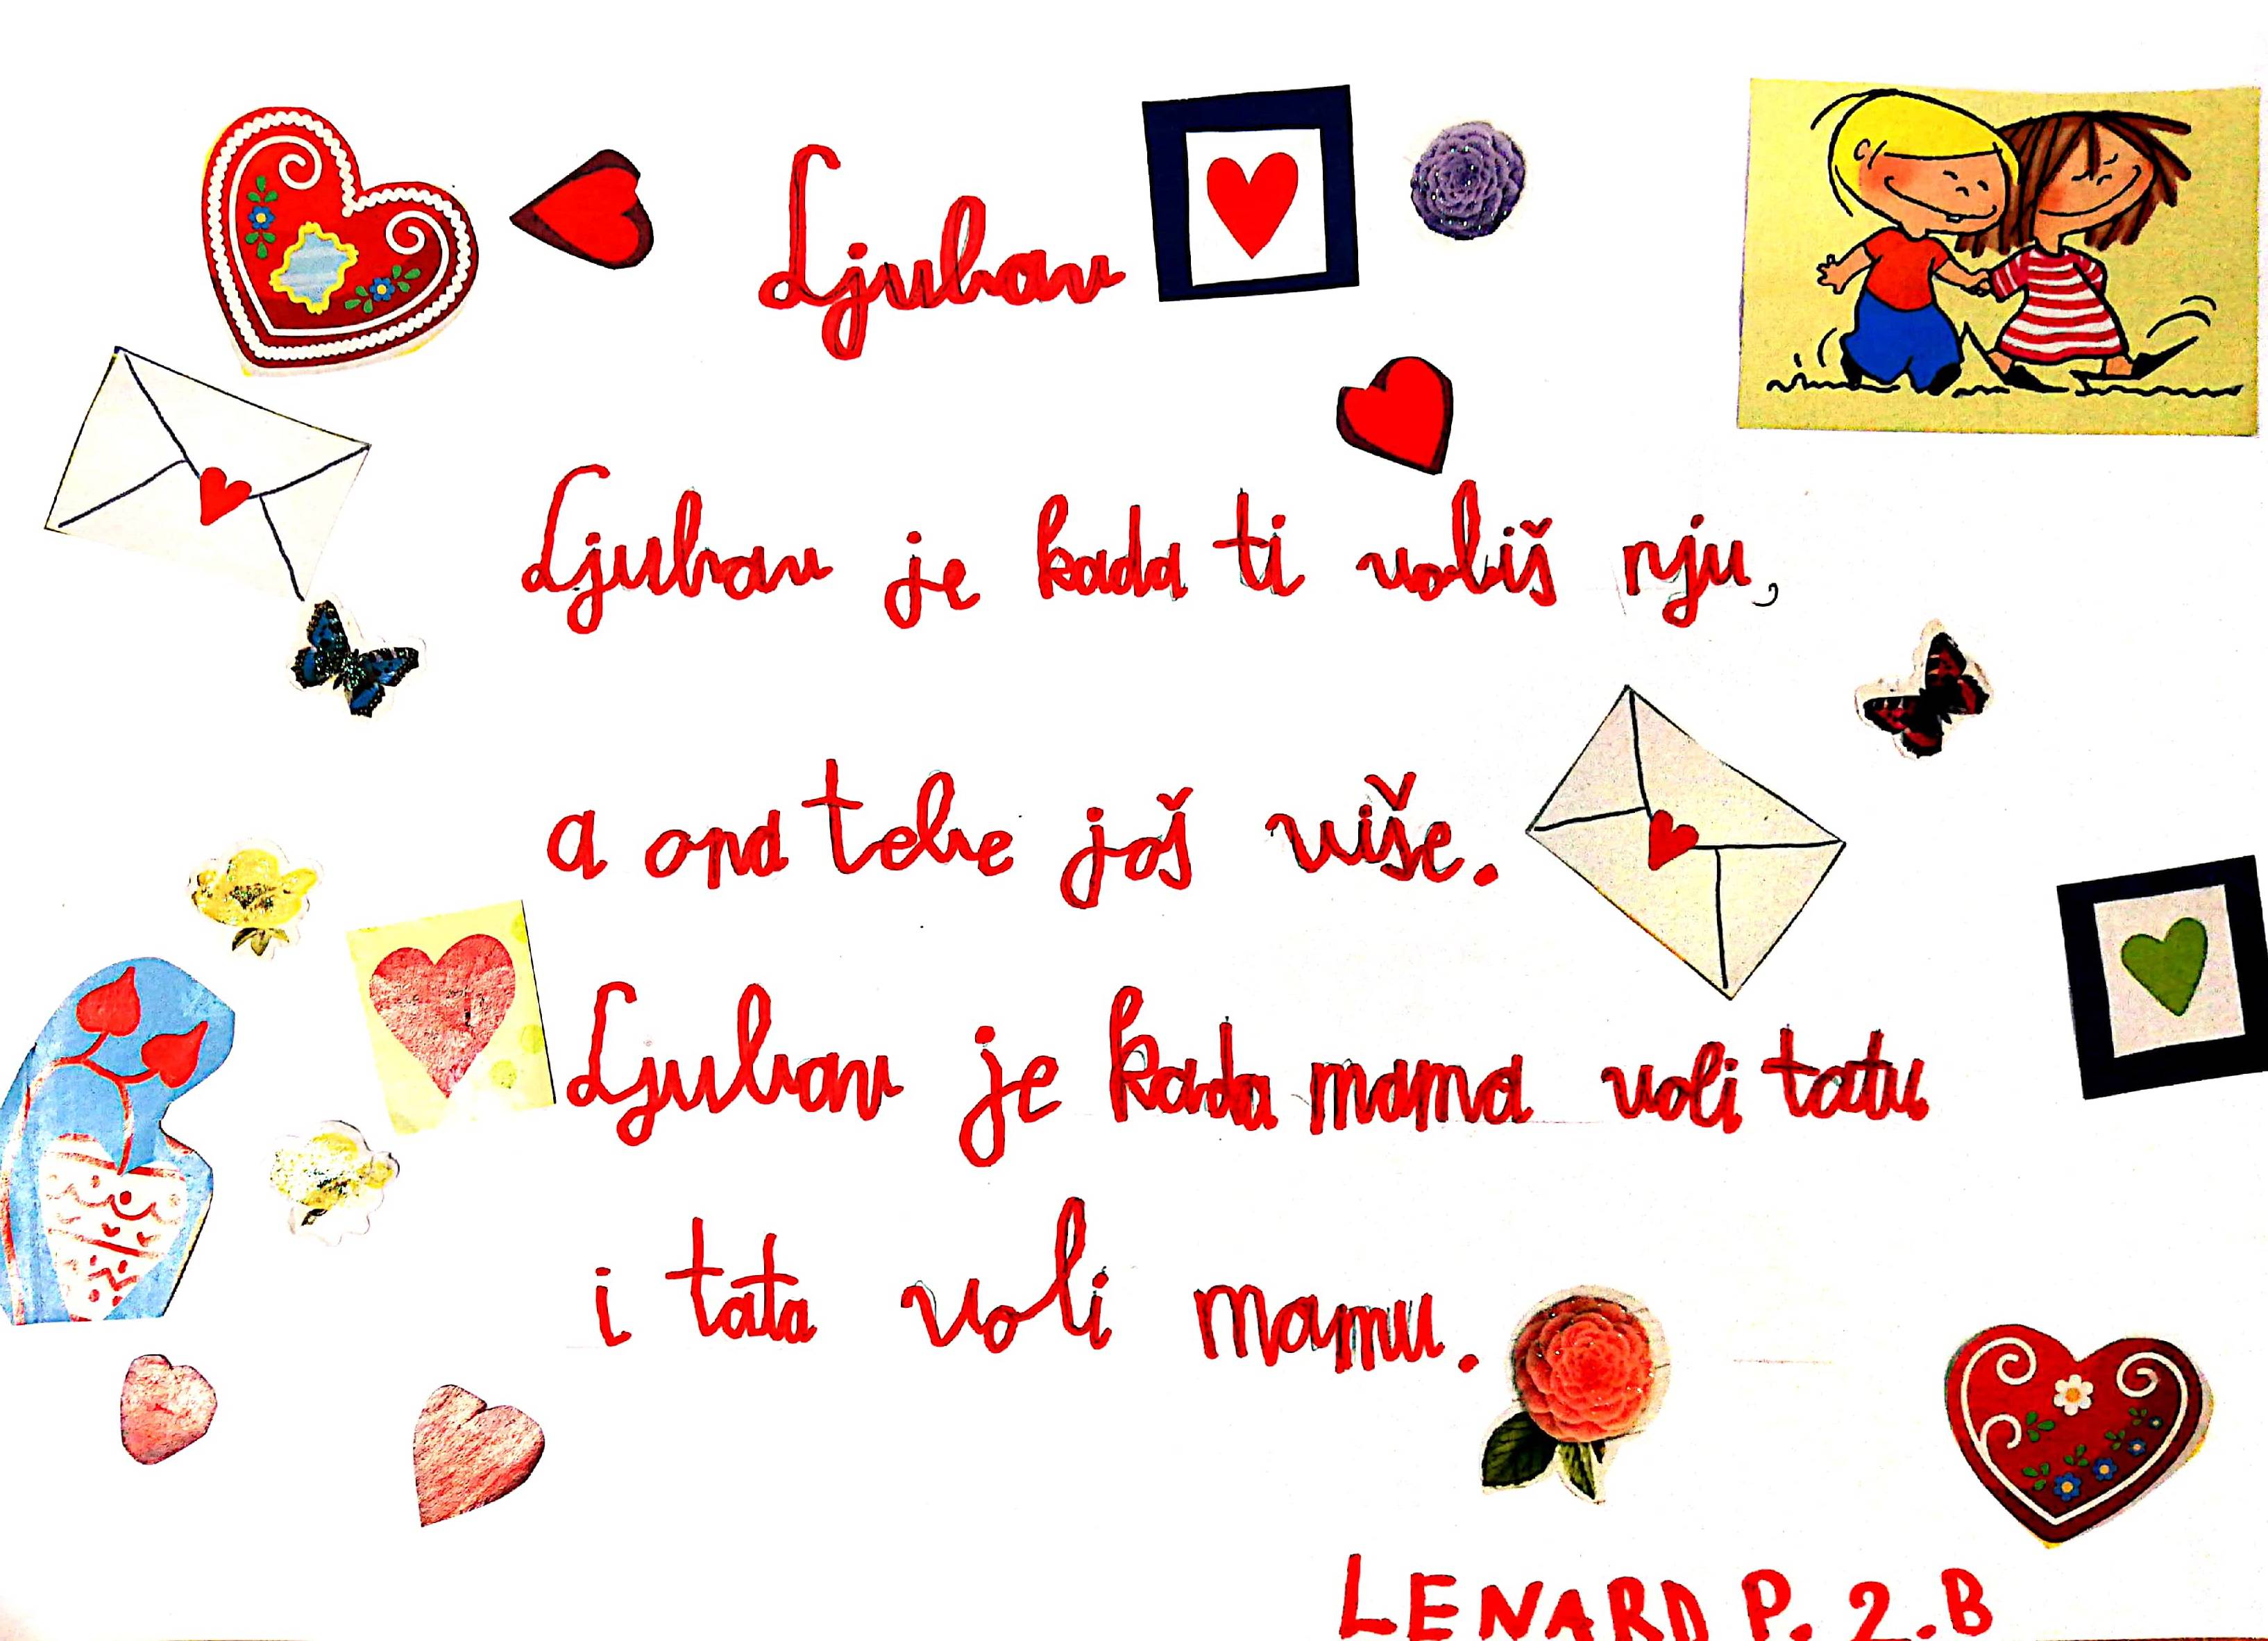 Ljubav
Ljubav je kada ti voliš nju,
a ona tebe još više.
Ljubav je kada mama voli tatu
i tata voli mamu.
LENARD P. 2.B